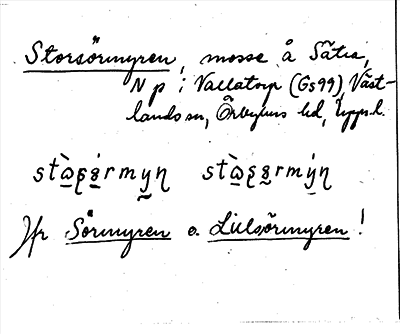 Storsörmyren, mosse å Sätra,
N p i Vallatorp (Gs99), Väst-
lands sn, Örbyhus hd, Upps.l.
Jfr Sörmyren o. Lillsörmyren!